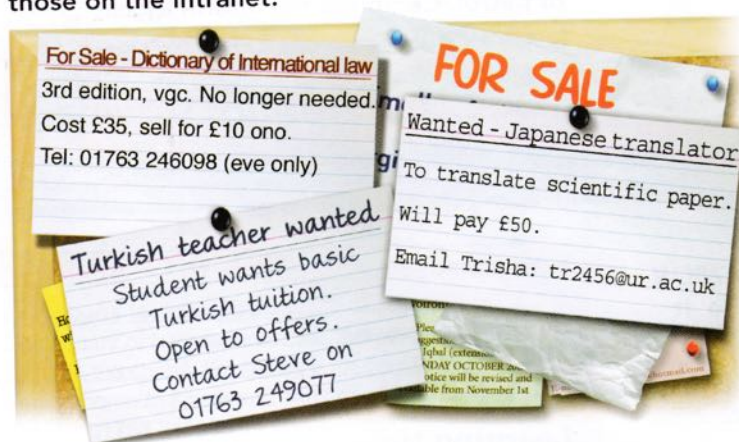 those on the intranet.
For Sale - Dictionary of International law
3rd edition, vgc. No longer needed.
Cost £35, sell for £10 ono.
Tel: 01763 246098 (eve only)
FOR SALE
Wanted - Japanese translator
To translate scientific paper.
Will pay £50.
Email Trisha: tr2456@ur.ac.uk
Turkish teacher wanted
Student wants basic
Turkish tuition.
Open to offers.
Contact Steve on
01763 249077
Iqbal
DAY OCTOBER
otice will be revised and
able from November 1st